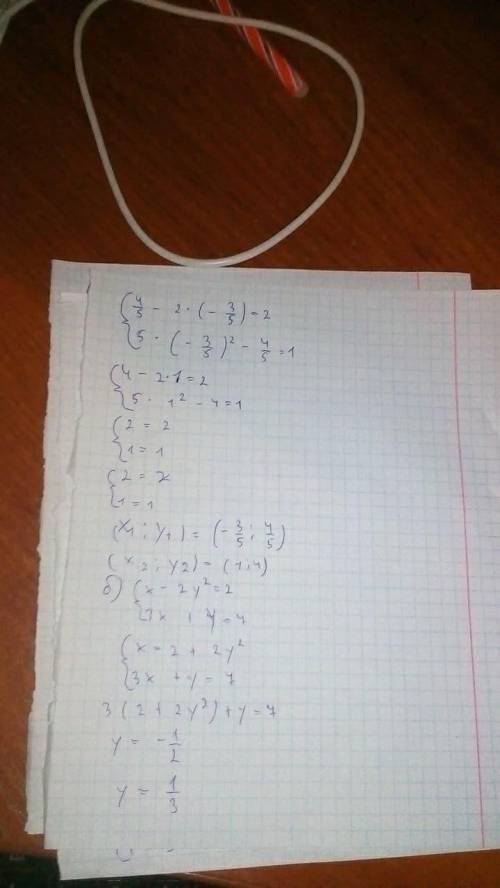 { 4/5 - 2·(-3/5) = 2
{ 5·(-3/5)² - 4/5 = 1
{ 4 - 2·1 = 2
{ 5·1² - 4 = 1
{ 2 = 2
{ 1 = 1
{ 2 = 2
{ 1 = 1
(x₁; y₁) = (-3/5; 4/5)
(x₂; y₂) = (1; 4)
б) { x - 2y² = 2
{ 3x + y = 7
{ x = 2 + 2y²
{ 3x + y = 7
3(2 + 2y²) + y = 7
y = -1/2
y = 1/3